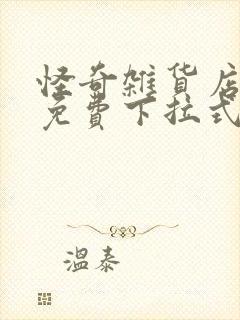 怪奇雜貨店
免費下拉式
溫泰